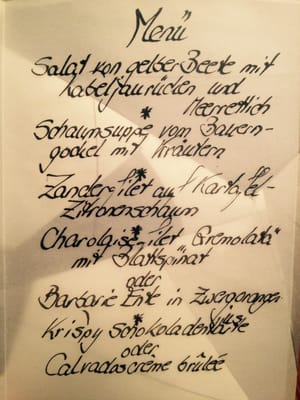 Menü
Salat von gelber Beete mit
Kabeljaurücken und
Meerrettich
*
Schaumsuppe vom Bauern-
gockel mit Kräutern
*
Zanderfilet auf Kartoffel-
Zitronenschaum
*
Charolaisefilet "Gremolata"
mit Blattspinat
oder
Barbarie Ente in Zwergorangen
jus
*
Krispy Schokoladentarte
oder
Calvadoscrème brûleé